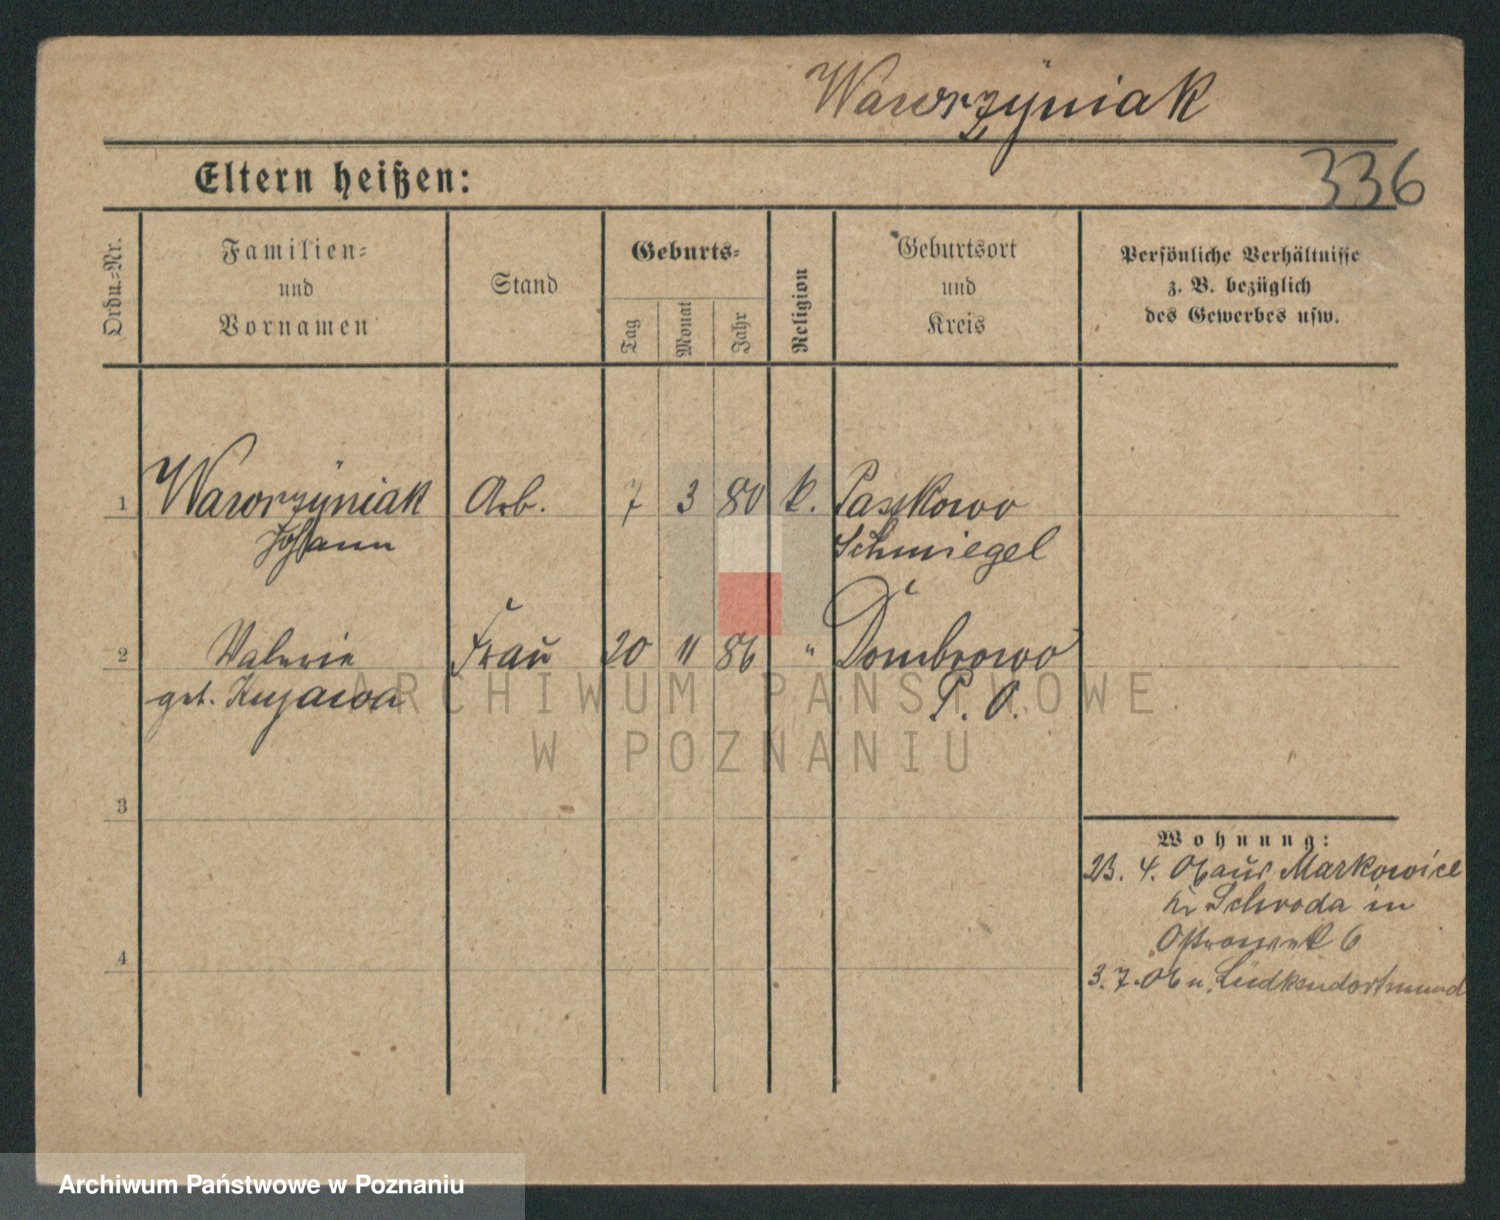 Wawrzÿniak
336
Eltern heißen:
Ordn.=Nr.
Familien=
und
Vornamen
Stand
Geburts=
Tag
Monat
Jahr
Religion
Geburtsort
und
Kreis
Persönliche Verhältnisse
z. B. bezüglich
des Gewerbes usw.
1 Wawrzÿniak Arb. 7 3 80 k. Paskowo
Johann Schmiegel
2 Valerie Frau 20 11 86 " Dombrowo
geb. Kujawa P. O.
3
4
Wohnung:
23. 4. 06 aus Markowice
Kr Schroda in
Ostrowek 6
3. 7. 06 n.
ARCHIWUM PAŃSTWOWE
W POZNANIU
Archiwum Państwowe w Poznaniu